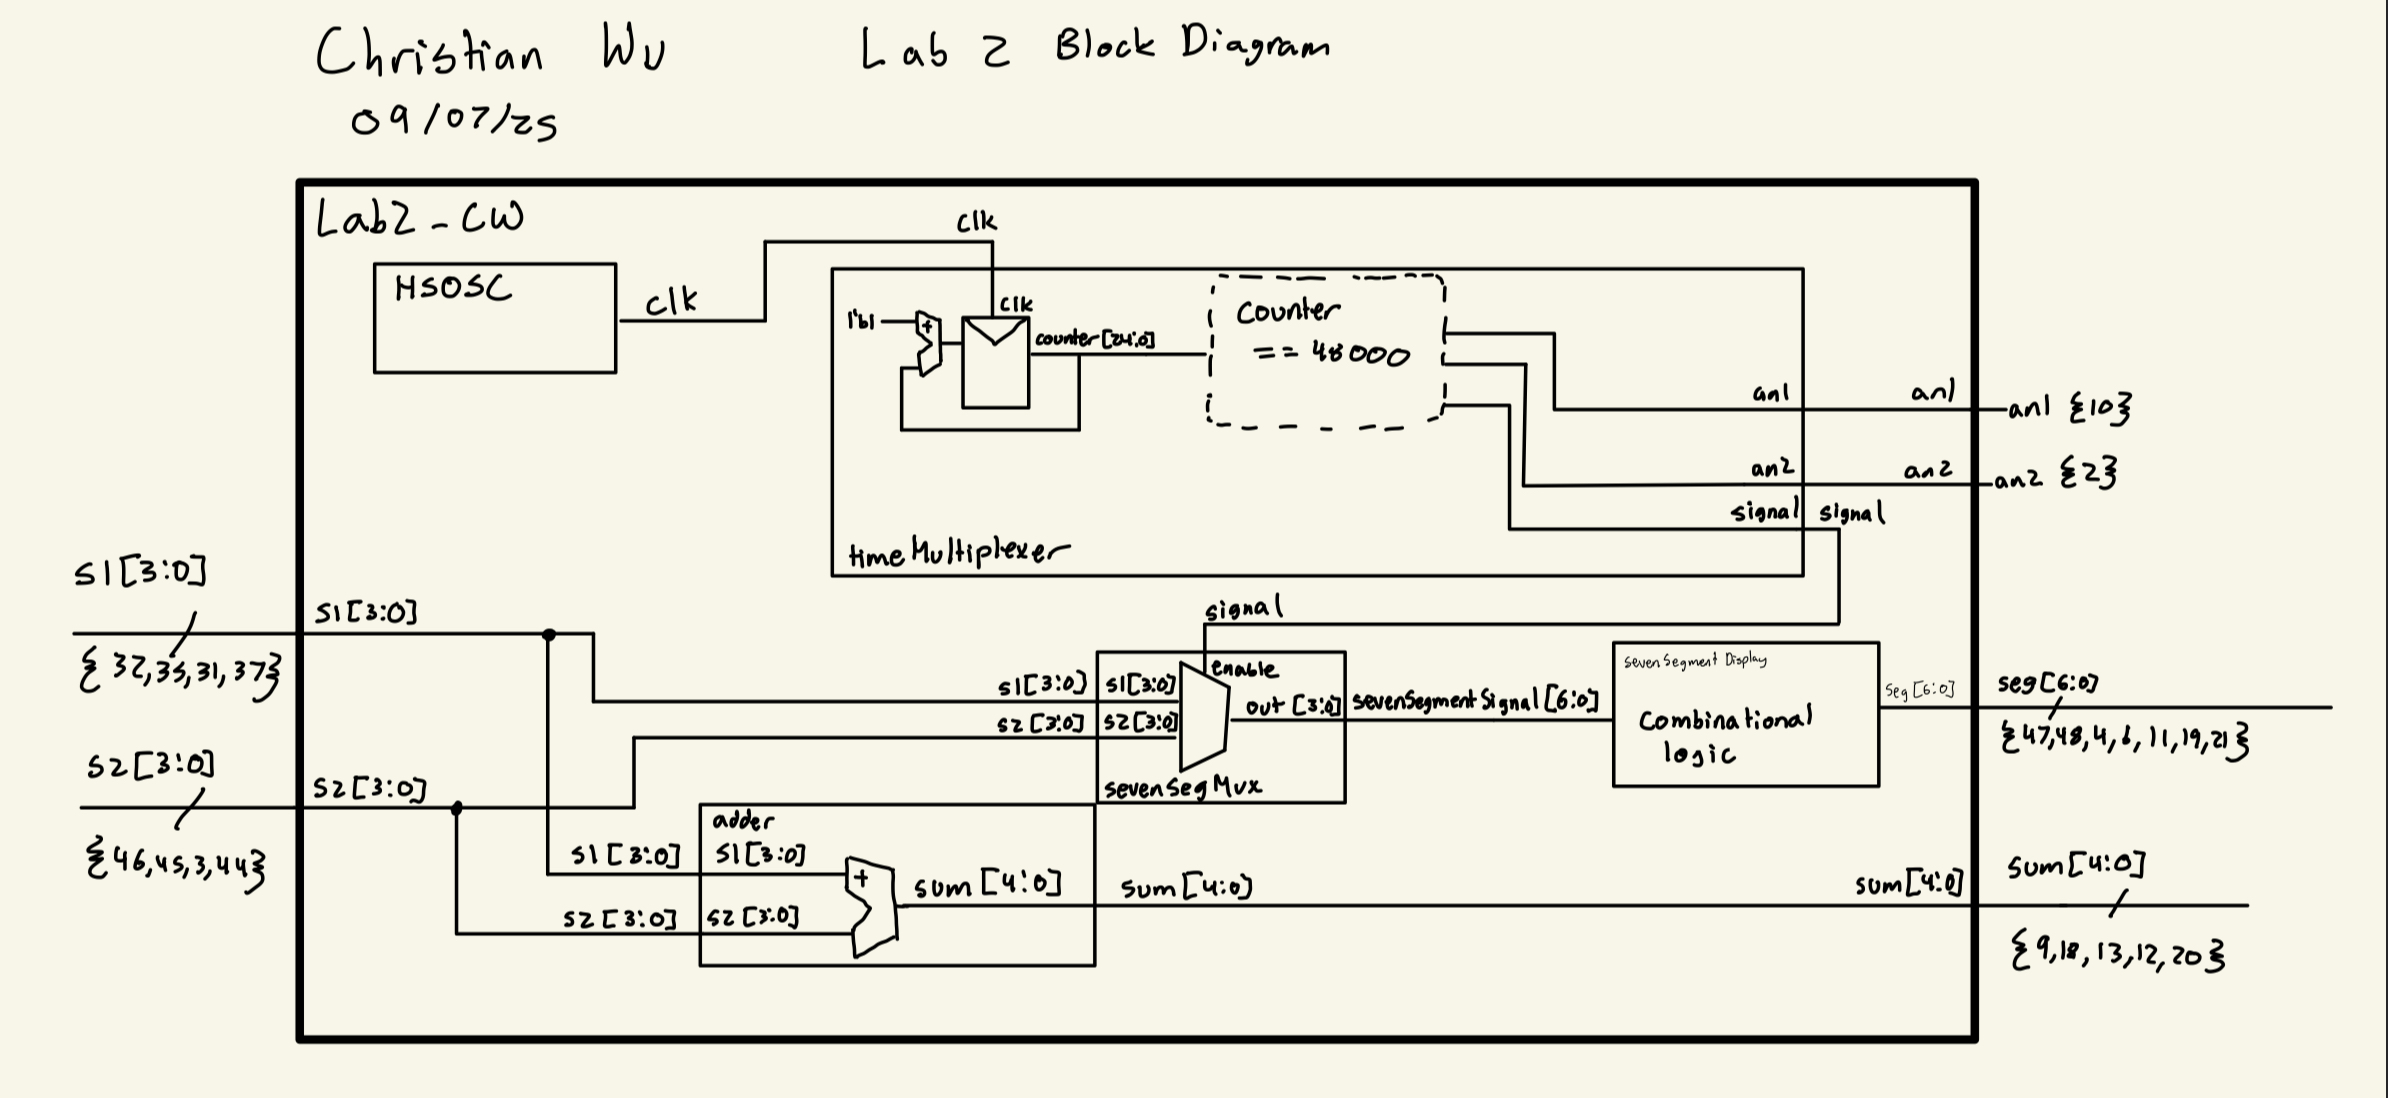 Christian Wu
Lab 2 Block Diagram
09/07/25
Lab2-CW
HSOSC
clk
clk
clk
1'b1
+
counter[24:0]
Counter
== 48000
an1
an1
an1 {10}
an2
an2
an2 {2}
signal
signal
timeMultiplexer
s1[3:0]
s1[3:0]
{32,35,31,37}
signal
enable
s1[3:0]
s1[3:0]
s2[3:0]
s2[3:0]
out [3:0]
sevenSegmentSignal[6:0]
sevenSegMux
Seven Segment Display
Combinational
logic
seg[6:0]
seg[6:0]
{47,48,4,6,11,19,21}
s2[3:0]
s2[3:0]
{46,45,3,44}
adder
s1[3:0]
s1[3:0]
s2[3:0]
s2[3:0]
+
sum[4:0]
sum[4:0]
sum[4:0]
sum[4:0]
{9,18,13,12,20}